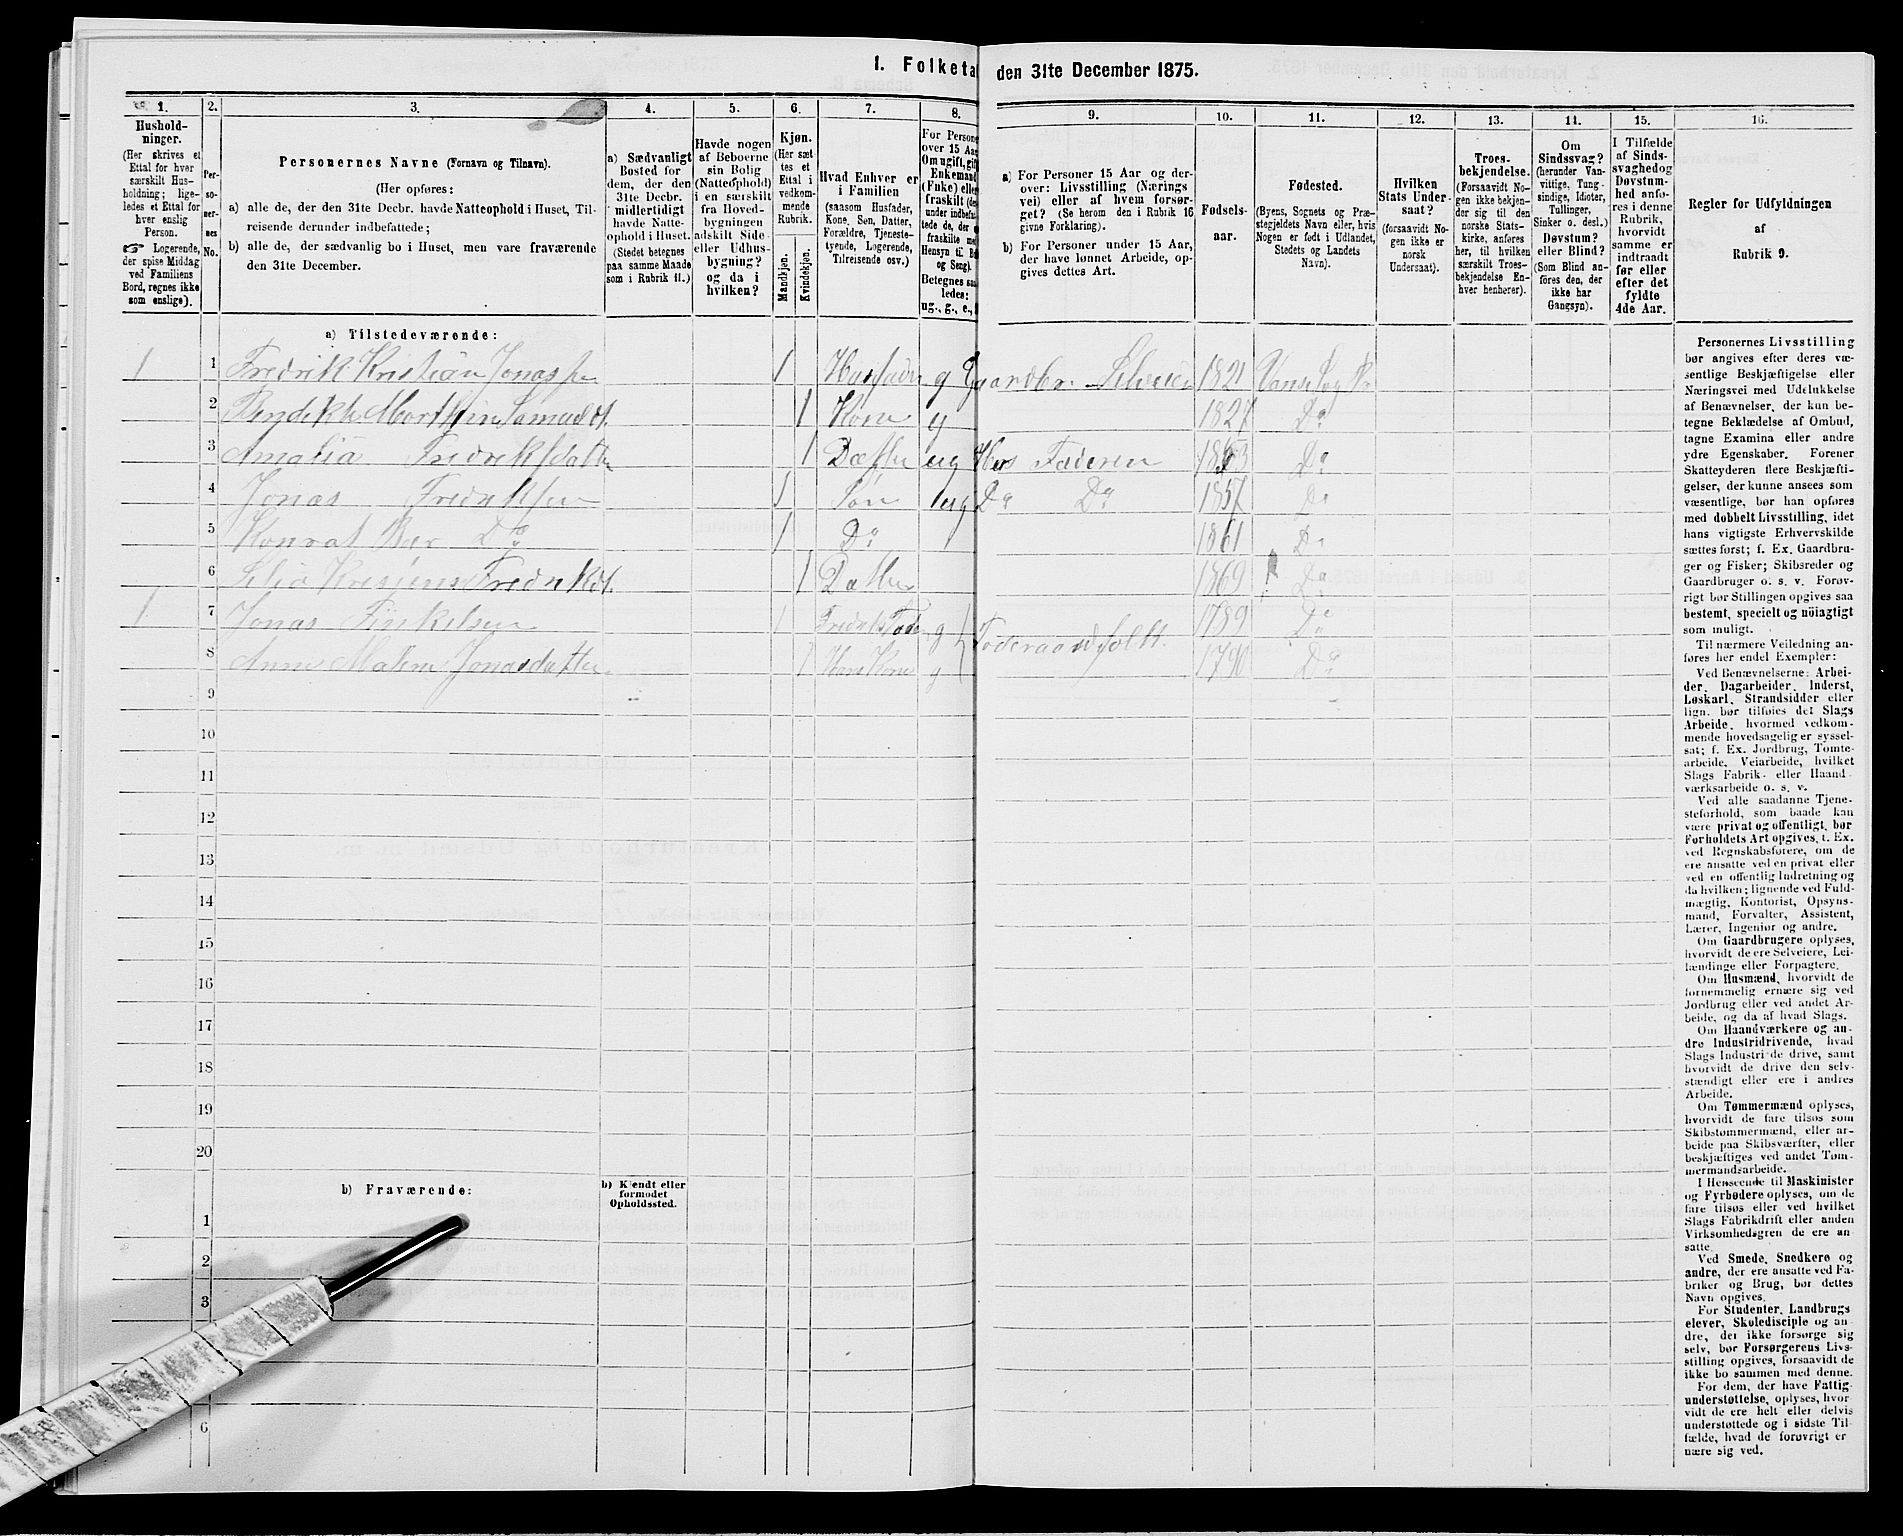 1. Folketal den 31te December 1875.
1. 2. 3. 4. 5. 6. 7. 8. 9. 10. 11. 12. 13. 14. 15. 16.
Hushold-
ninger.
(Her skrives et
Ettal for hver
særskilt Hus-
holdning; lige-
ledes et Ettal for
hver enslig
Person.
☞ Logerende,
der spise Middag
ved Familiens
Bord, regnes ikke
som enslige).
Per-
so-
ner-
nes
No.
Personernes Navne (Fornavn og Tilnavn).
(Her opføres:
a) alle de, der den 31te Decbr. havde Natteophold i Huset, Til-
reisende derunder indbefattede;
b) alle de, der sædvanlig bo i Huset, men vare fraværende
den 31te December.
a) Sædvanligt
Bosted for
dem, der den
31te Decbr.
midlertidigt
havde Natte-
ophold i Huset.
(Stedet betegnes
paa samme Maade
som i Rubrik 11.)
Havde nogen
af Beboerne
sin Bolig
(Natteophold)
i en særskilt
fra Hoved-
bygningen
adskilt Side-
eller Udhus-
bygning?
og da i
hvilken?
Kjøn.
(Her sæt
tes et
Ettal i
vedkom-
mende
Rubrik.
Mandkjøn.
Kvindekjøn.
Hvad Enhver er
i Familien
(saasom Husfader,
Kone, Søn, Datter,
Forældre, Tjeneste-
tyende, Logerende,
Tilreisende osv.)
For Persone
over 15 Aar
Om ugift, gift
Enkemand
(Enke) eller
fraskilt (de
under indbefat-
tede de, der e
fraskilte me
Hensyn til Bo
og Seng).
Betegnes saa
ledes:
ug., g., e.,
a) For Personer 15 Aar og der-
over: Livsstilling (Nærings
vei) eller af hvem forsør-
get? (Se herom den i Rubrik 16
givne Forklaring).
b) For Personer under 15 Aar,
der have lønnet Arbeide, op-
gives dettes Art.
Fødsels-
aar.
Fødested.
(Byens, Sognets og Præ-
stegjeldets Navn eller, hvis
Nogen er født i Udlandet,
Stedets og Landets
Navn).
Hvilken
Stats Under-
saat?
(forsaavidt No-
gen ikke er
norsk
Undersaat).
Troes-
bekjendelse.
(Forsaavidt No-
gen ikke bekjen-
der sig til den
norske Stats-
kirke, anføres
her, til hvilken
særskilt Troes-
bekjendelse En-
hver henhører).
Om
Sindssvag?
(herunder Van-
vittige, Tung-
sindige, Idioter,
Tullinger,
Sinker o. desl.)
Døvstum?
eller Blind?
(Som Blind an-
føres den, der
ikke har
Gangsyn).
I Tilfælde
af Sinds-
svaghed og
Døvstum-
hed anfø-
res i denne
Rubrik,
hvorvidt
samme er
indtraadt
før eller
efter det
fyldte
4de Aar.
Regler for Udfyldningen
af
Rubrik 9.
a) Tilstedeværende:
1 1 Fredrik Kristian 1 g Gaardbr. Selveier 1821
2 1 Kone g 1827 Do
3 Amalia Fredriksdatter 1 Datter ug Faderen Do
4 Jonas Fredriksen 1 Søn ug Do Do 1857 Do
5 Do 1 Do 1861 Do
6 1 Datter 1869 Do
1 7 Jonas 1 g 1789 Do
8 Jonasdatter 1 Hans Kone g 1790 Do
9
10
11
12
13
14
15
16
17
18
19
20
b) Fraværende:
b) Kjendt eller
formodet
Opholdssted.
1
2
3
6
Personernes Livsstilling
bør angives efter deres væ-
sentlige Beskjæftigelse eller
Næringsvei med Udelukkelse
af Benævnelser, der kun be-
tegne Beklædelse af Ombud,
tagne Examina eller andre
ydre Egenskaber. Forener
Skatteyderen flere Beskjæfti-
gelser, der kunne ansees som
væsentlige, bør han opføres
med dobbelt Livsstilling, idet
hans vigtigste Erhvervskilde
sættes først; f. Ex. Gaardbru-
ger og Fisker; Skibsreder og
Gaardbruger o. s. v. Forøv-
rigt bør Stillingen opgives saa
bestemt, specielt og nöiagtigt
som muligt.
Til nærmere Veiledning an-
føres her endel Exempler:
Ved Benævnelserne: Arbei-
der, Dagarbeider, Inderst,
Løskarl, Strandsidder eller
lign. bør tilføies det Slags
Arbeide, hvormed vedkom-
mende hovedsagelig er syssel-
sat; f. Ex. Jordbrug, Tomte-
arbeide, Veiarbeide, hvilket
Slags Fabrik- eller Haand-
værksarbeide o. s. v.
Ved alle saadanne Tjene-
steforhold, som baade kan
være privat og offentligt, bør
Forholdets Art opgives, t. Ex.
ved Regnskabsførere, om de
ere ansatte ved en privat eller
ved en offentlig Indretning og
da hvilken; lignende ved Fuld-
mægtig, Kontorist, Opsyns-
mand, Forvalter, Assistent,
Lærer, Ingeniør og andre.
Om Gaardbrugere oplyses,
hvorvidt de ere Selveiere, Lei-
lændinge eller Forpagtere.
Om Husmænd, hvorvidt de
fornemmelig ernære sig ved
Jordbrug eller ved andet Ar-
beide, og da af hvad Slags.
Om Haandværkere og an-
dre Industridrivende, hvad
Slags Industri de drive, samt
hvorvidt de drive den selv-
stændigt eller ere i andres
Arbeide.
Om Tømmermænd oplyses,
hvorvidt de fare tilsøs som
Skibstømmermænd, eller ar-
beide paa Skibsværfter, eller
beskjæftiges ved andet Tøm-
mermandsarbeide.
I Henseende til Maskinister
og Fyrbødere oplyses, om de
fare tilsøs eller ved hvilket
Slags Fabrikdrift eller anden
Virksomhedsgren de ere an-
satte.
Ved Smede, Snedkere og
andre, der ere ansatte ved Fa-
briker og Brug, bør dettes
Navn opgives.
For Studenter, Landbrugs
elever, Skoledisciple og an-
dre, der ikke forsørge sig
selv, bør Forsørgerens Livs-
stilling opgives, forsaavidt de
ikke bo sammen med denne.
For dem, der have Fattig-
understøttelse, oplyses, hvor-
vidt de ere helt eller delvis
understøttede og i sidste Til-
fælde, hvad de forøvrigt er
nære sig ved.